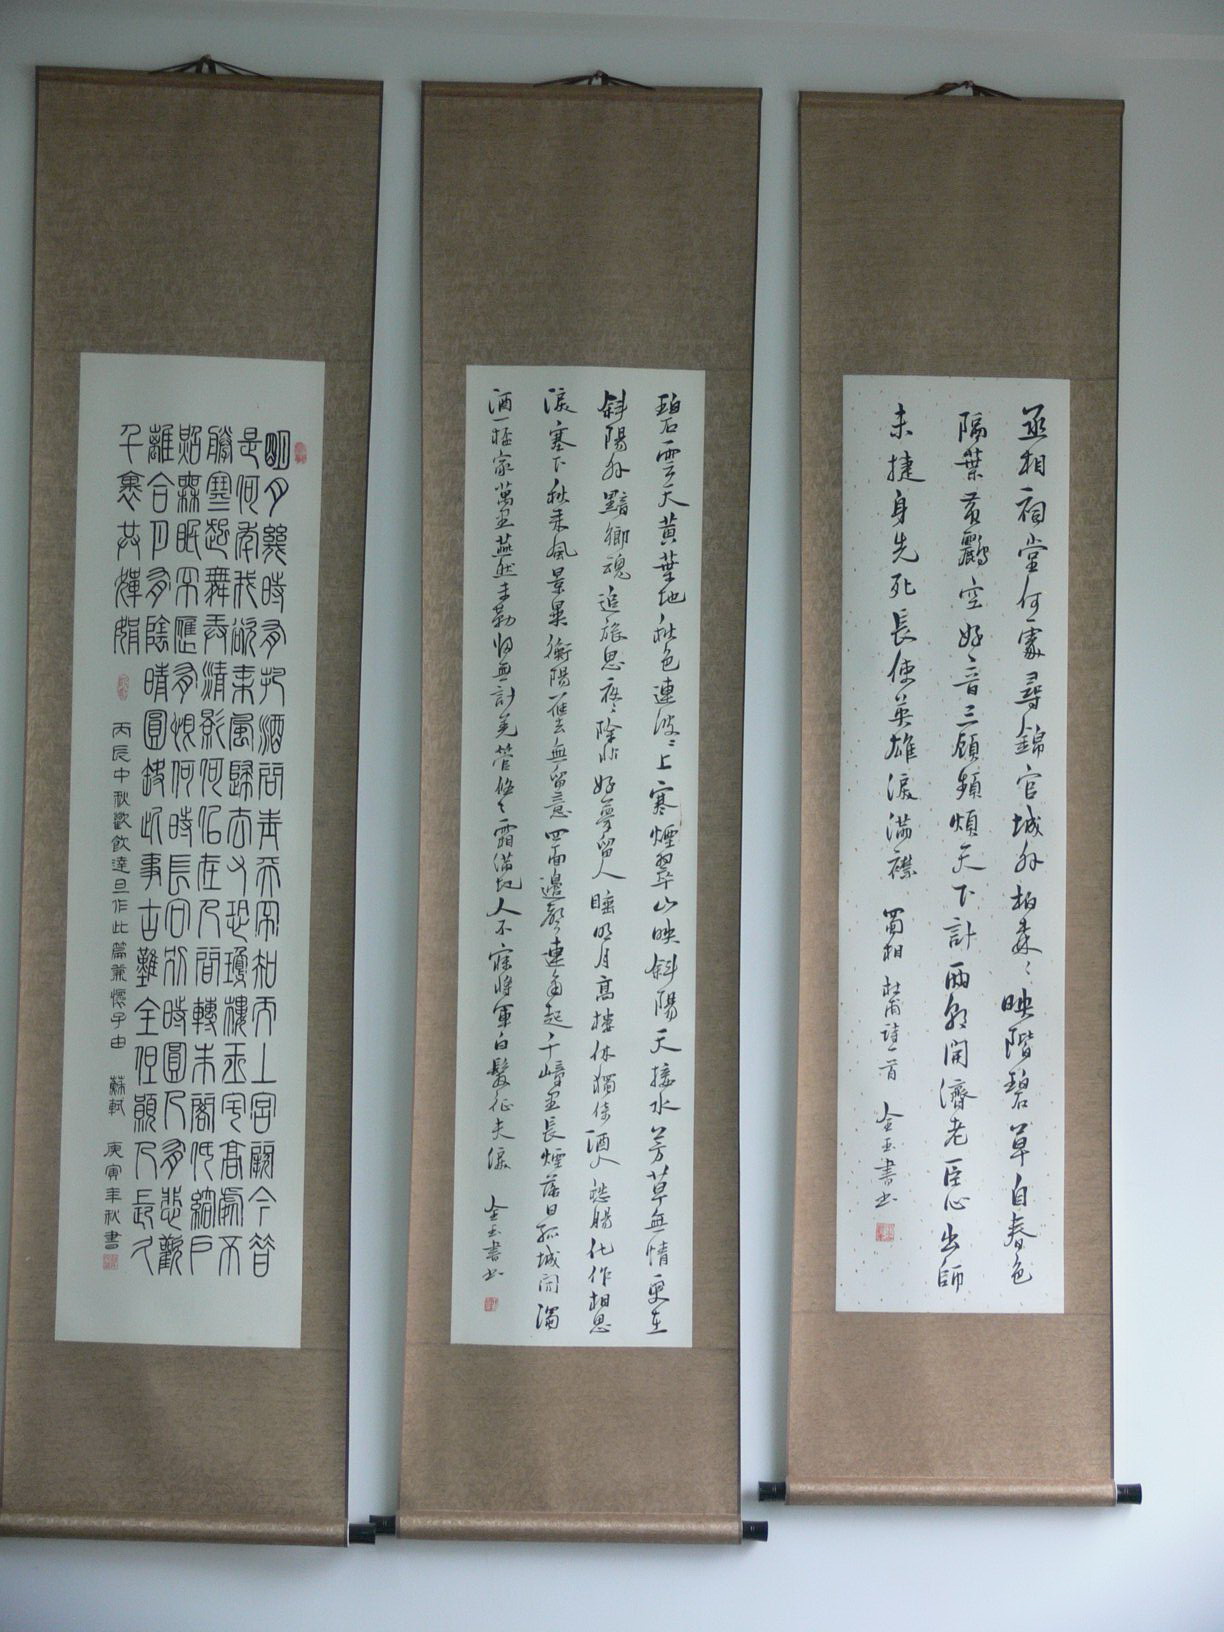 丞相祠堂何處尋錦官城外柏森〻映階碧草自春色
隔葉黃鸝空好音三顧頻煩天下計兩朝開濟老臣心出師
未捷身先死長使英雄淚滿襟 蜀相 杜甫詩一首 金玉書
碧雲天黃葉地秋色連波〻上寒煙翠山映斜陽天接水芳草無情更在
斜陽外黯鄉魂追旅思夜〻除非好夢留人睡明月高樓休獨倚酒入愁腸化作相思
淚塞下秋來風景異衡陽雁去無留意四面邊聲連角起千嶂里長煙落日孤城閉濁
酒一杯家萬里燕然未勒歸無計羌管悠〻霜滿地人不寐將軍白髮征夫淚 金玉書
明月幾時有把酒問青天不知天上宮闕今昔
是何年我欲乘風歸去又恐瓊樓玉宇高處不
勝寒起舞弄清影何似在人間轉朱閣低綺戶
照無眠不應有恨何時長向別時圓人有悲歡
離合月有陰晴圓缺此事古難全但願人長久
千裏共嬋娟 丙辰中秋歡飲達旦作此篇兼懷子由 蘇軾 庚寅年秋書